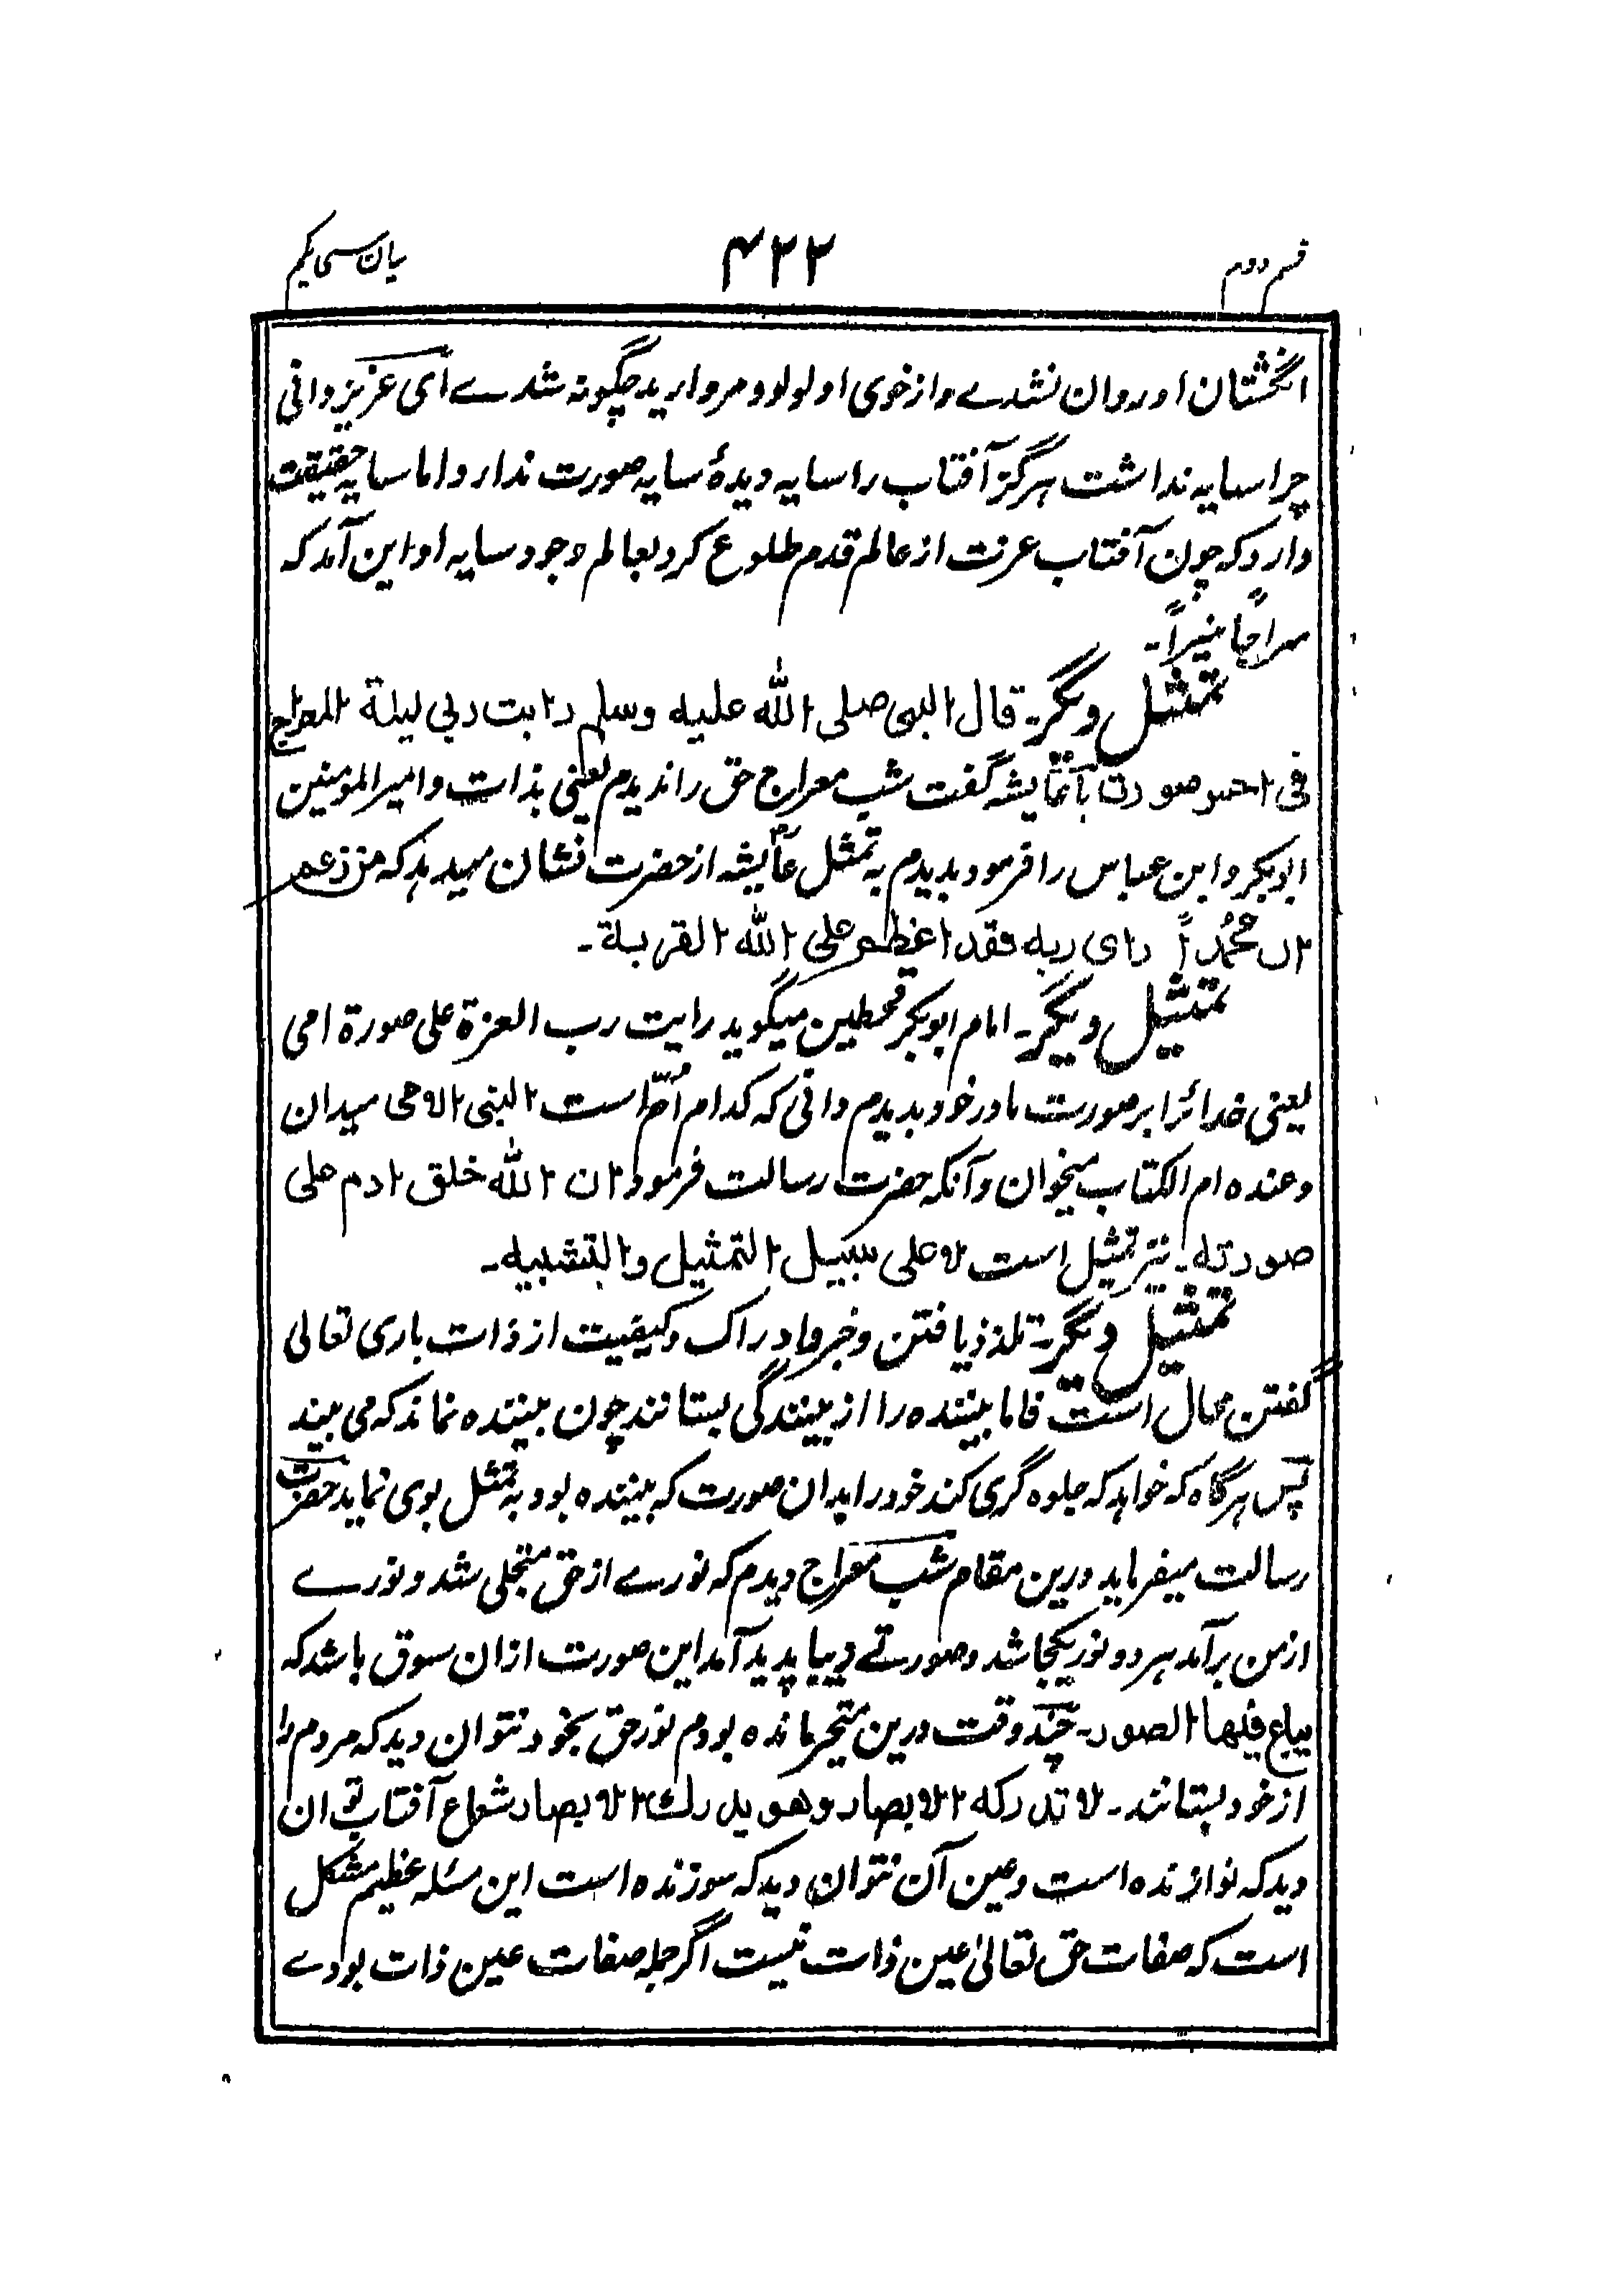 قسم دوم ۴۲۲ بیان سی یکم
انگشتان او روان نشدے و از خوی او لولو و مروارید چگونه شدے اے عزیز دانی
چرا سایه نداشت هرگز آفتاب را سایه دیدۂ سایه صورت ندارد اما سایه حقیقت
دارد که چون آفتاب عزت از عالم قدم طلوع کرد بعالم وجود سایه او این آمد که
سراجًا منیرًا۔
تمثیل دیگر۔ قال النبی صلی الله علیه وسلم رایت ربی لیلة المعراج
فی احسن صورة با عایشه گفت شب معراج حق را ندیدم یعنی بذات و امیر المومنین
ابوبکر و ابن عباس را فرمود بدیدم به تمثل عایشه از حضرت نشان میدهد که من زعم
ان محمدًا رای ربه فقد اعظم علی الله القریة۔
تمثیل دیگر۔ امام ابوبکر قحطبین میگوید رایت رب العزة علی صورة امی
یعنی خدائرا بر صورت مادر خود بدیدم دانی که کدام اُمّ است النبی الامی میدان
وعنده ام الکتاب میخوان و آنکه حضرت رسالت فرمود ان الله خلق ادم علی
صورته۔ نیز تمثیل است لا علی سبیل التمثیل و التشبیه۔
تمثیل دیگر۔ تلذذ یافتن و خبر و ادراک و کیفیت از ذات باری تعالی
گفتن محال است فاما بیننده را از بینندگی بستانند چون بیننده نماند که می بیند
پس هرگاه که خواهد که جلوه گری کند خود را بدان صورت که بیننده بود به تمثل بوی نماید حضرت
رسالت میفرماید درین مقام شب معراج دیدم که نورے از حق متجلی شد و نورے
از من برآمد هر دو نور یکجا شد و صورتے زیبا پدید آمد این صورت ازان سوق باشد که
یباع فیها الصور۔ چند وقت درین متحیر مانده بودم نور حق بخود نتوان دید که مردم را
از خود بستانند۔ لا تدرکه الابصار وهو یدرك الابصار شعاع آفتاب توان
دید که نوازنده است و عین آن نتوان دید که سوزنده است این مسئله عظیم مشکل
است که صفات حق تعالیٰ عین ذات نیست اگر جمله صفات عین ذات بودے